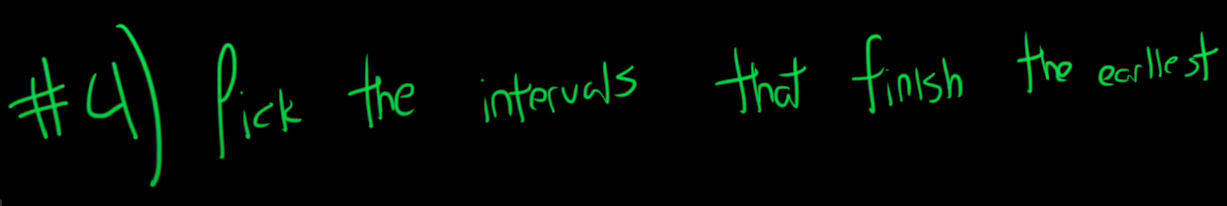 #4) Pick the intervals that finish the earliest